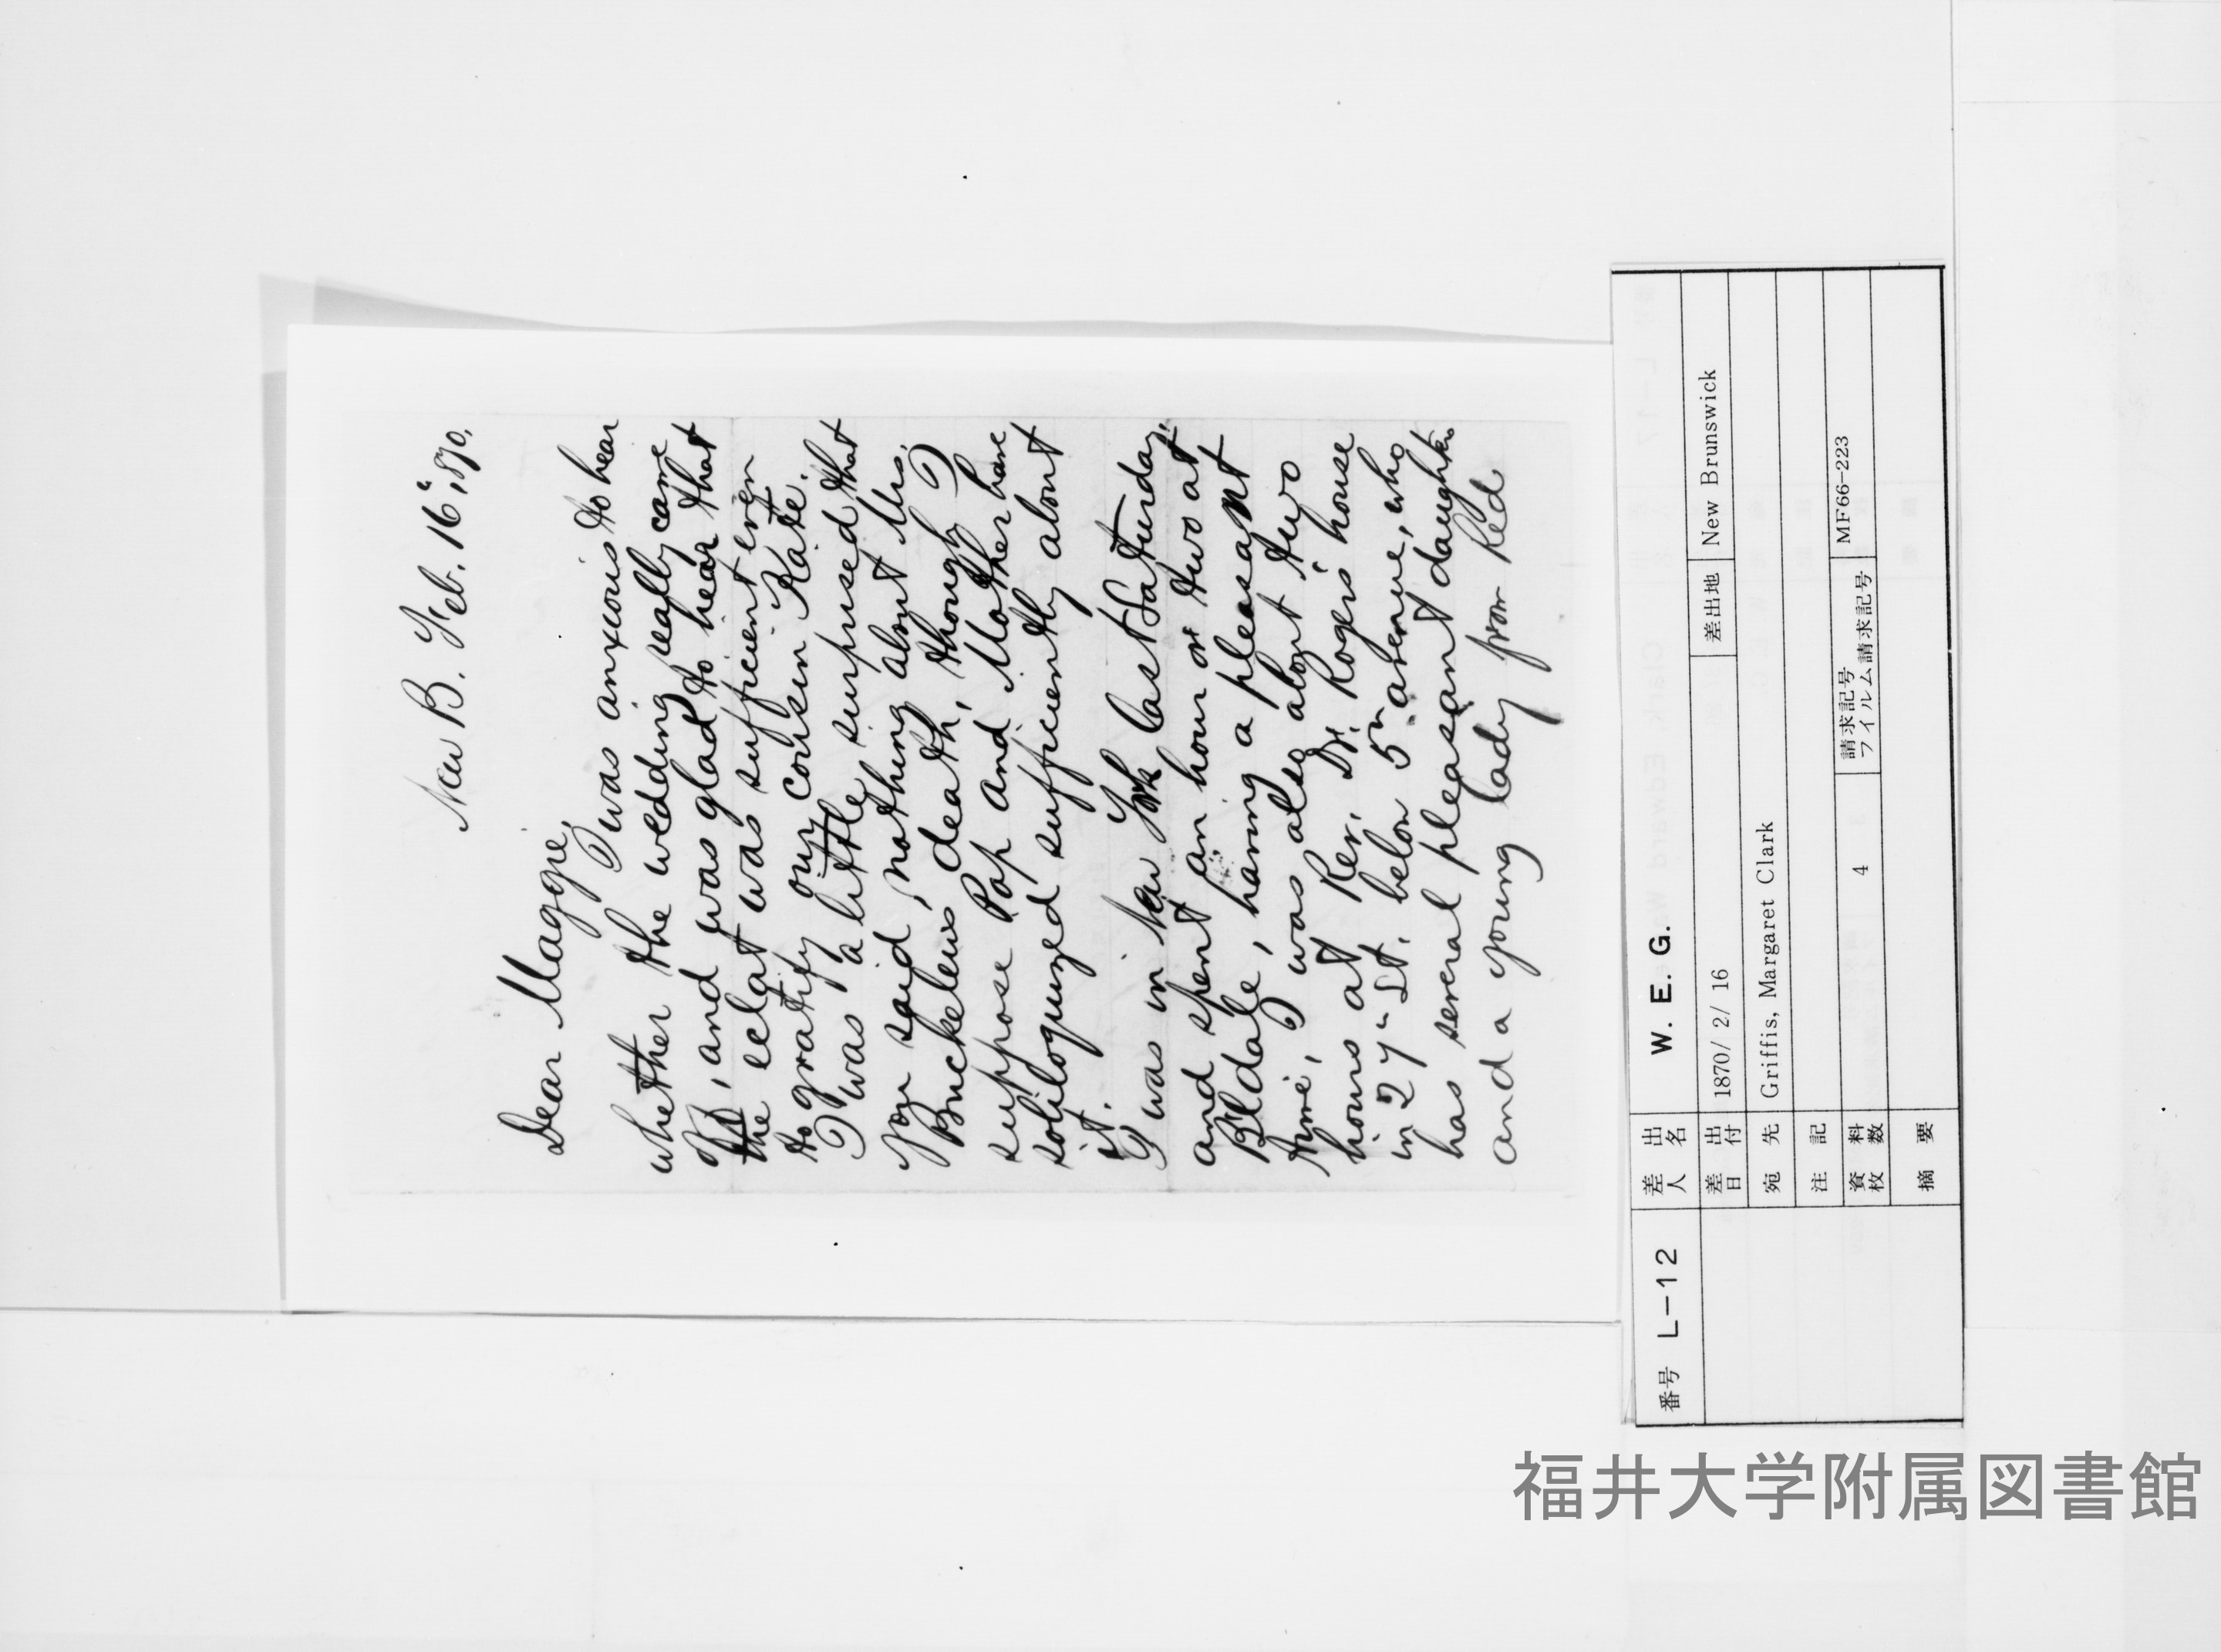 New B. Feb. 16" 1870.
Dear Maggie,
I was anxious to hear
whether the wedding really came
off, and was glad to hear that
the eclat was sufficient even
to gratify our cousin Kate.
I was a little surprised that
you said nothing about Mrs.
Buckelew's death, though I
suppose Pap and Mother have
soliloquized sufficiently about
it.
I was in New York last Saturday,
and spent an hour or two at
Bldale, having a pleasant
time, I was also about two
hours at Rev. Dr. Rogers' house
in 27" St. below 5" avenue, who
has several pleasant daughters
and a young lady from Red
番号 L-12
差出人名 W. E. G.
差出日付 1870/ 2/ 16 差出地 New Brunswick
宛先 Griffis, Margaret Clark
注記
資料枚数 4 請求記号 フイルム請求記号 MF66-223
摘要
福井大学附属図書館